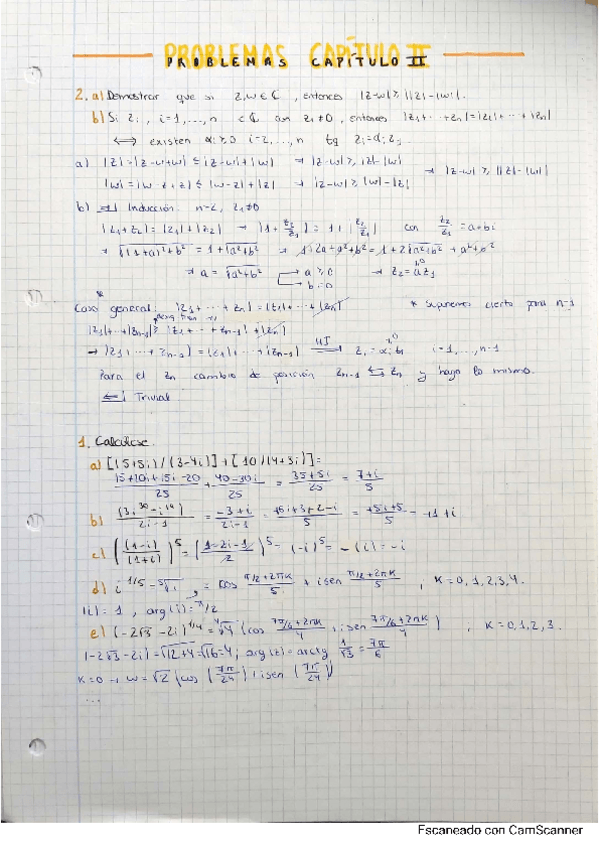 PROBLEMAS CAPÍTULO II
2. a) Demostrar que si z,w ∈ ℂ, entonces |z-w| ≥ ||z|-|w||.
b) Si zi, i=1,...,n ∈ ℂ con z1≠0, entonces |z1+...+zn|=|z1|+...+|zn|
⟺ existen αi ≥ 0 i=2,...,n tq zi=αi z1.
a) |z|=|z-w+w| ≤ |z-w|+|w| → |z-w| ≥ |z|-|w| → |z-w| ≥ ||z|-|w||
|w|=|w-z+z| ≤ |w-z|+|z| → |z-w| ≥ |w|-|z|
b) ⟹| Inducción: n=2, z1≠0
|z1+z2|=|z1|+|z2| → |1+z2/z1| = 1+|z2/z1| con z2/z1=a+bi
→ √((1+a)²+b²) = 1+√(a²+b²) → 1+2a+a²+b²=1+2√(a²+b²)+a²+b²
→ a=√(a²+b²) a≥0 b=0 → z2=a z1
Caso general: |z1+...+zn|=|z1|+...+|zn| * Suponemos cierto para n-1
|z1|+...+|zn-1| ≥ |z1+...+zn-1|
→ |z1+...+zn-1|=|z1|+...+|zn-1| ⟹ zi=αi z1 i=1,...,n-1
Para el zn cambio de posición zn-1 ⇆ zn y hago lo mismo.
⟸| Trivial
1. Calcúlese
a) [(5+5i)/(3-4i)]+[10/(4+3i)]=
(15+20i+15i-20)/25 + (40-30i)/25 = (35+5i)/25 = (7+i)/5
b) (3i^30-i^19)/(2i-1) = (-3+i)/(2i-1) = (+6i+3+2-i)/5 = (+5i+5)/5 = +1+i
c) ((1-i)/(1+i))^5 = ((1-2i-1)/2)^5 = (-i)^5 = -(i) = -i
d) i^1/5 = ⁵√i = cos (π/2+2πk)/5 + i sen (π/2+2πk)/5, k=0,1,2,3,4.
|i|=1, arg(i)=π/2
e) (-2√3-2i)^1/4 = ⁴√4 (cos (7π/6+2πk)/4 + i sen (7π/6+2πk)/4), k=0,1,2,3.
|-2√3-2i|=√(12+4)=√16=4; arg(z)=arctg 1/√3 = 7π/6
k=0 → w=√2 (cos (7π/24) + i sen (7π/24))
...
Escaneado con CamScanner